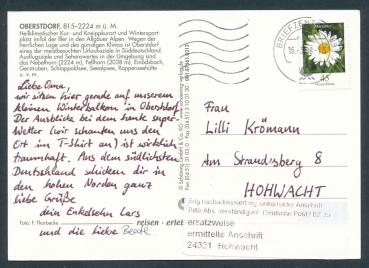 OBERSTDORF, 815-2224 m ü. M.
Heilklimatischer Kur- und Kneippkurort und Wintersport-
platz inmitten der Allgäuer Alpen. Wegen der
herrlichen Lage und des günstigen Klimas ist Oberstdorf
eines der meistbesuchten Urlaubsziele in Süddeutschland.
Ausflugsziele und Sehenswertes in der Umgebung sind
das Nebelhorn (2224 m), Fellhorn (2038 m), Einödsbach,
Gerstruben, Schlappoldsee, Seealpsee, Rappenseehütte
u. v. m.
Liebe Oma,
wir sitzen hier gerade auf unserem
kleinen Winterbalkon in Oberstdorf.
Der Ausblick bei dem heute super
Wetter (wir schauten uns den
Ort im T-Shirt an) ist wirklich
traumhaft. Aus dem südlichsten
Deutschland schicken dir in
den hohen Norden ganz
liebe Grüße
dein Enkelsohn Lars
und die liebe Beate
Foto: F. Thorbecke
reisen
BRIEFZENT
45
Frau
Lilli Krömann
Am Strandsberg 8
HOHWACHT
Bitte Abs. verständigen! Deutsche Post
ersatzweise
ermittelte Anschrift
24321 Hohwacht